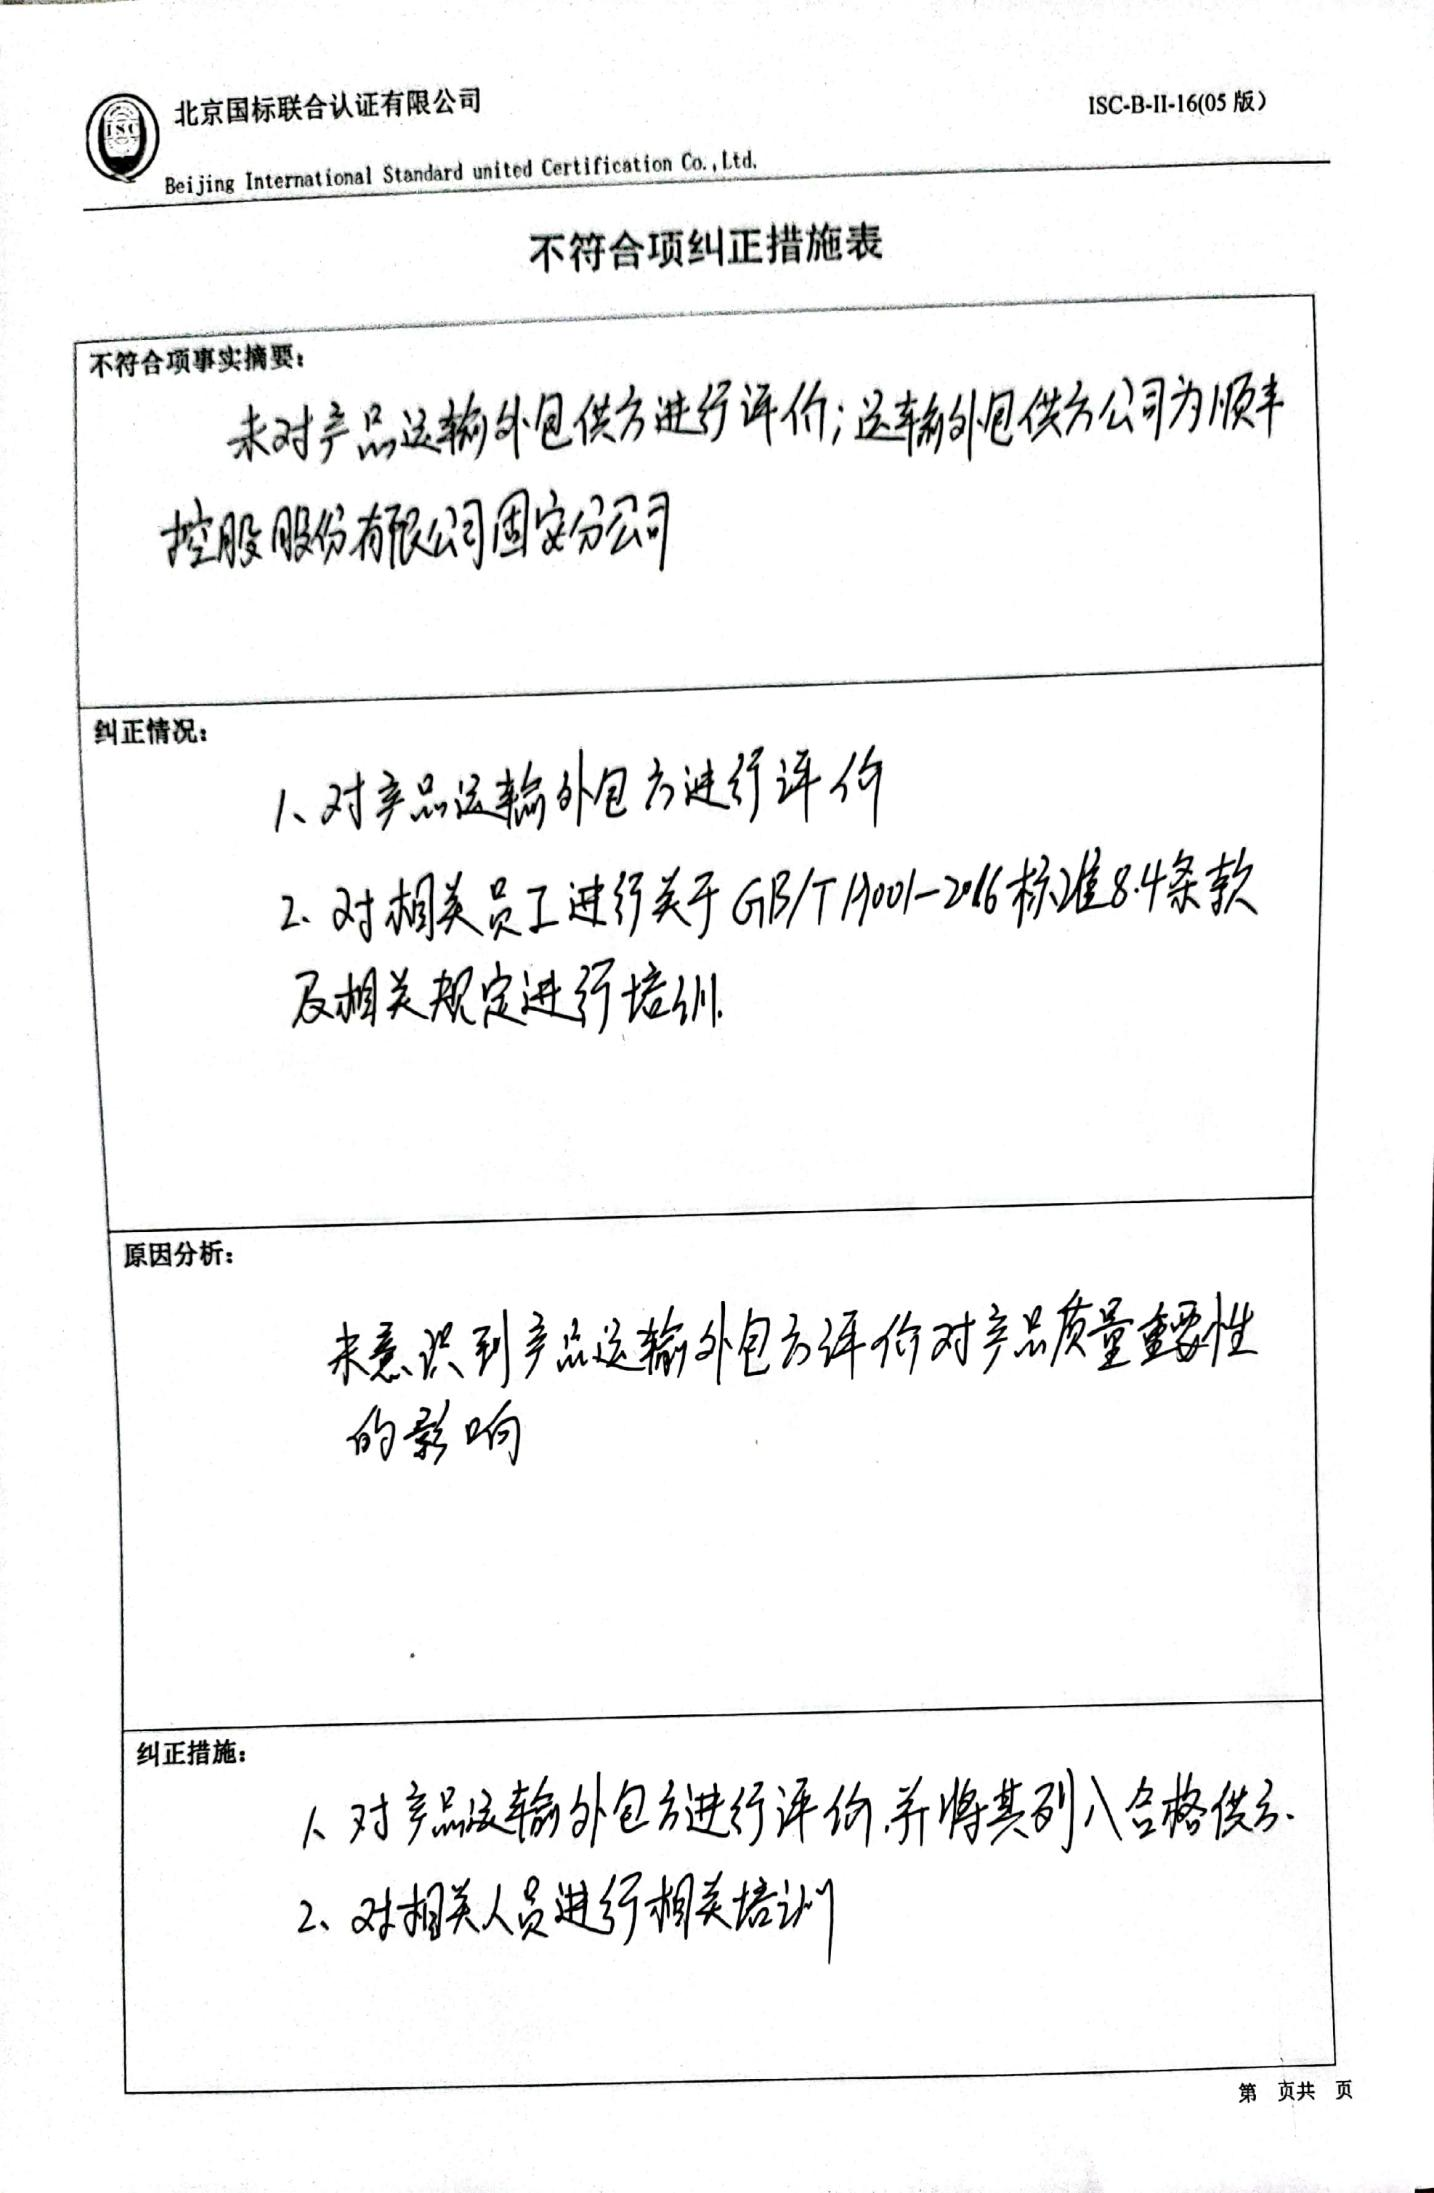 北京国标联合认证有限公司
ISC-B-II-16(05版）
ISC
Beijing International Standard united Certification Co.,Ltd.
不符合项纠正措施表
不符合项事实摘要：
未对产品运输外包供方进行评价；运输外包供方公司为顺丰
控股股份有限公司固安分公司
纠正情况：
1、对产品运输外包方进行评价
2、对相关员工进行关于GB/T19001-2016标准8.4条款
及相关规定进行培训.
原因分析：
未意识到产品运输外包方评价对产品质量重要性
的影响
纠正措施：
1、对产品运输外包方进行评价,并将其列入合格供方.
2、对相关人员进行相关培训
第 页共 页